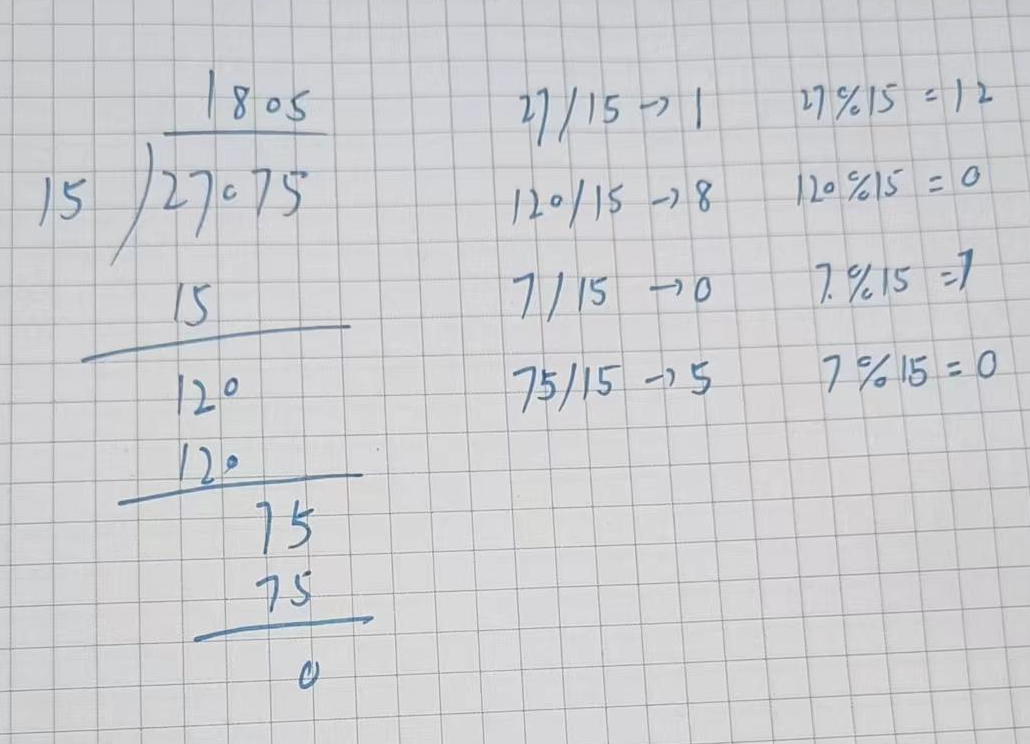 1805 27/15 → 1 27%15 = 12
15 ) 27075 120/15 → 8 120%15 = 0
15 7/15 → 0 7.%15 = 7
120 75/15 → 5 7%15 = 0
120
75
75
0